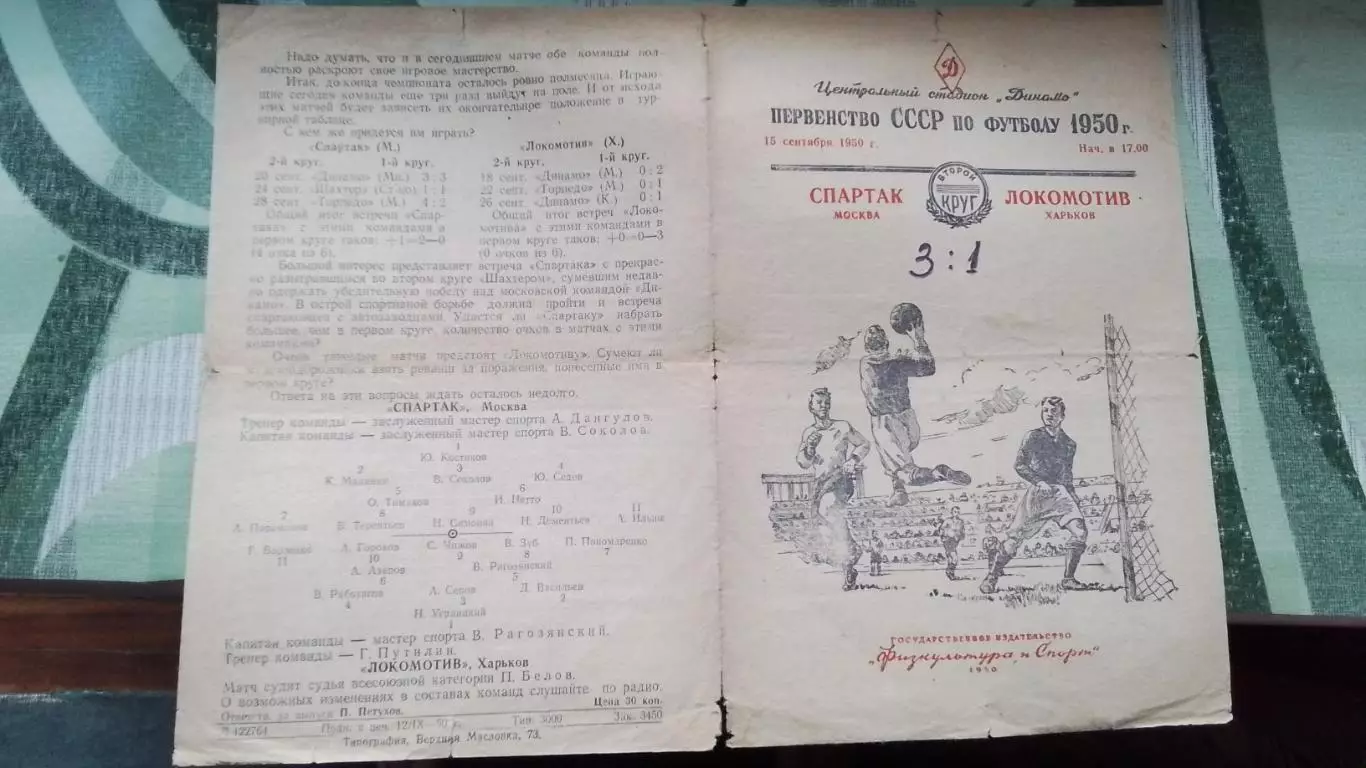 Надо думать, что и в сегодняшнем матче обе команды пол-
ностью раскроют свое игровое мастерство.
Итак, до конца чемпионата осталось ровно полмесяца. Играю-
щие сегодня команды еще три раза выйдут на поле. И от исхода
этих матчей будет зависеть их окончательное положение в тур-
нирной таблице.
С кем же придется им играть?
«Спартак» (М.)
2-й круг. 1-й круг.
20 сент. «Динамо» (Мн.) 3 : 3
24 сент. «Шахтер» (Ст-но) 1 : 1
28 сент. «Торпедо» (М.) 4 : 2
Общий итог встречи «Спар-
така» с этими командами в
первом круге таков: +1=2—0
(4 очка из 6).
«Локомотив» (Х.)
2-й круг. 1-й круг.
18 сент. «Динамо» (М.) 0 : 2
22 сент. «Торпедо» (М.) 0 : 1
26 сент. «Динамо» (К.) 0 : 1
Общий итог встреч «Локо-
мотива» с этими командами в
первом круге таков: +0=0—3
(0 очков из 6).
Большой интерес представляет встреча «Спартака» с прекрас-
но разыгравшимся во втором круге «Шахтером», сумевшим недав-
но одержать убедительную победу над московской командой «Ди-
намо». В острой спортивной борьбе должна пройти и встреча
спартаковцев с автозаводцами. Удастся ли «Спартаку» набрать
большее, чем в первом круге, количество очков в матчах с этими
командами?
Очень тяжелые матчи предстоят «Локомотиву». Сумеют ли
взять реванш за поражения, понесенные ими в
первом круге?
Ответа на эти вопросы ждать осталось недолго.
«СПАРТАК», Москва
Тренер команды — заслуженный мастер спорта А. Дангулов.
Капитан команды — заслуженный мастер спорта В. Соколов.
1
Ю. Костиков
2 3 4
К. Малинин В. Соколов Ю. Седов
5 6
О. Тимаков И. Нетто
7 8 9 10 11
А. Парамонов В. Терентьев Н. Симонян Н. Дементьев А. Ильин
Г. Борзенко А. Горохов С. Чижов В. Зуб П. Пономаренко
11 10 9 8 7
А. Азеров В. Рагозянский
6 5
В. Работягов А. Серов Л. Васильев
4 3 2
Н. Уграицкий
1
Капитан команды — мастер спорта В. Рагозянский.
Тренер команды — Г. Путилин.
«ЛОКОМОТИВ», Харьков
Матч судит судья всесоюзной категории П. Белов.
О возможных изменениях в составах команд слушайте по радио.
Цена 30 коп.
Ответств. за выпуск П. Петухов.
422764 Подп. к печ. 12/IX—50 г. Тир. 3000 Зак. 3450
Типография, Верхняя Масловка, 73.
Д
Центральный стадион „Динамо"
ПЕРВЕНСТВО СССР ПО ФУТБОЛУ 1950 г.
15 сентября 1950 г. Нач. в 17.00
СПАРТАК
МОСКВА
ВТОРОЙ
КРУГ
ЛОКОМОТИВ
ХАРЬКОВ
3:1
ГОСУДАРСТВЕННОЕ ИЗДАТЕЛЬСТВО
„Физкультура и Спорт"
1950